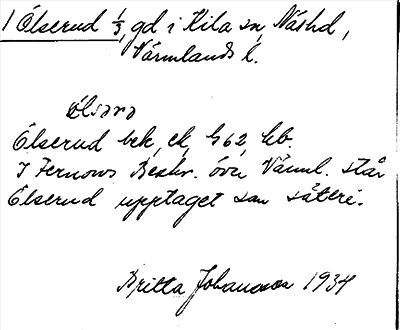 1 Ölserud 1/3, gd i Kila sn, Näshd,
Värmlands l.
ölsərə
Ölserud bek, ek, G62, kb.
I Fernows Beskr. öva Värml. står
Ölserud upptaget som säteri.
Britta Johansson 1934